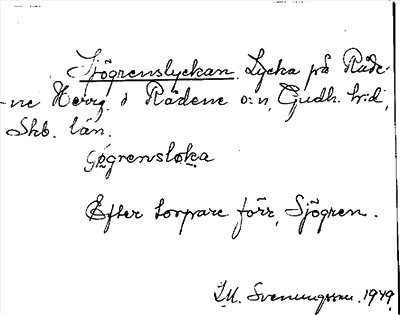 Sjögrenslyckan. Lycka på Råde-
ne Herrg. i Rådene o:n, Gudh. h:d,
Skb. län.
Efter torpare förr, Sjögren.
Svenungsson. 1949.